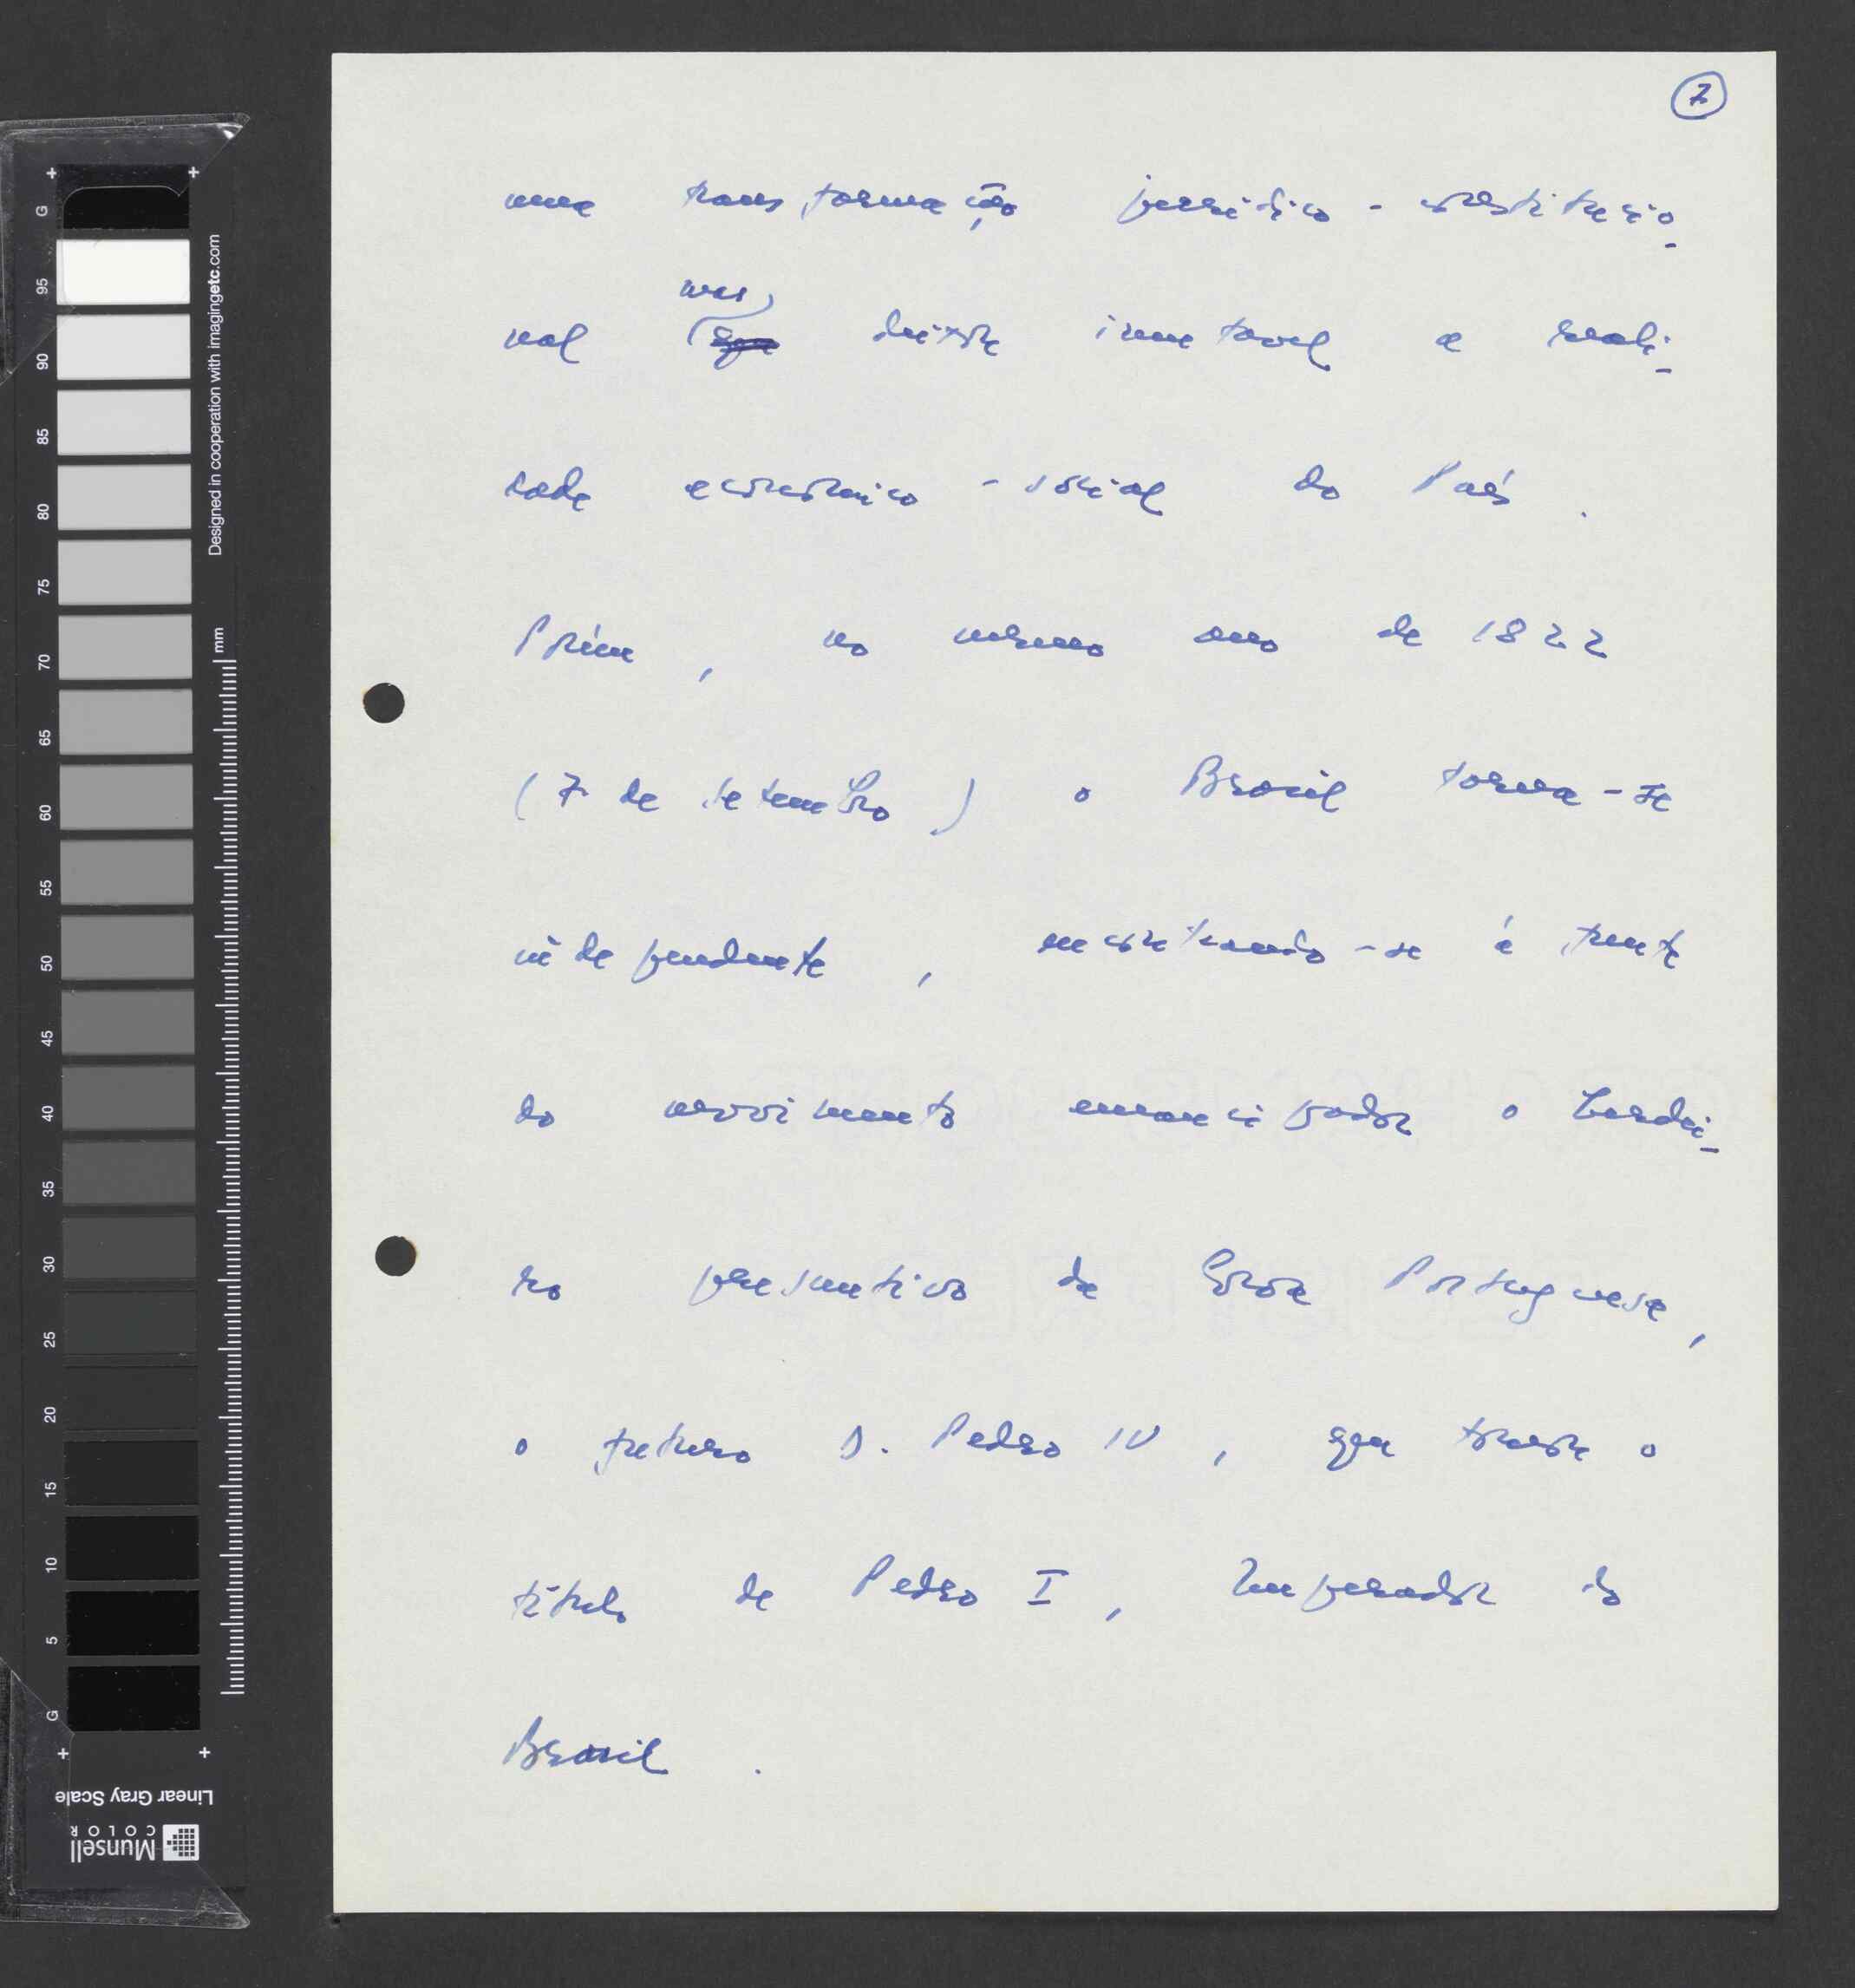 7
uma transformação jurídico-constitucio-
mas
nal que deixou imutavel a reali-
dade economico-social do País.
Porém, no mesmo ano de 1822
(7 de Setembro) o Brasil torna-se
independente, encontrando-se á frente
do movimento emancipador o herdei-
ro presuntivo da Coroa Portuguesa,
o futuro D. Pedro IV, que tomou o
título de Pedro I, Imperador do
Brasil.
G 95 90 85 80 75 70 65 60 55 50 45 40 35 30 25 20 15 10 5 G
Designed in cooperation with imagingetc.com
mm
Linear Gray Scale
Munsell
COLOR